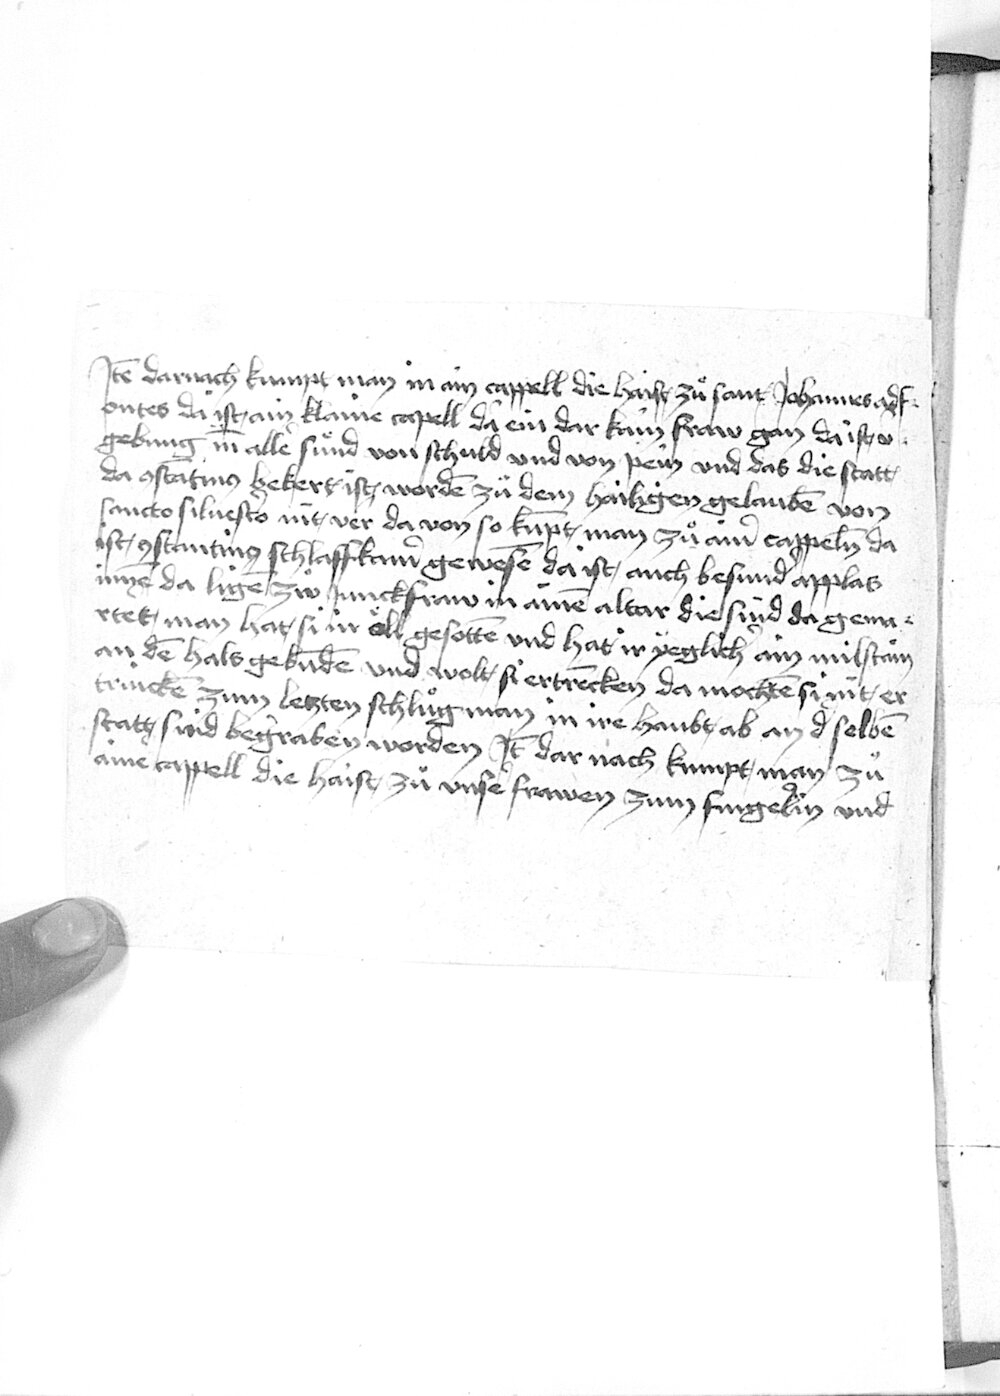 Itē darnach kumpt man in ain cappell die haist zuͦ sant Johannes adf-
ontes da ist ain klaine capell da ein dar kain fraw gan da ist v-
gebung in̄ alleʳ suͤnd von schuld vnd von pein vnd das die statt
da ꝯstātinꝰ bekert ist wordē zuͦ dem hailigen gelaubē von
sancto siluestʳo nit ver da von so kūpt man zuͦ ainʳ cappeln̄ da
ist ꝯstantinꝰ schlaffkamʳ gewesē da ist auch besundʳ applas
inne da ligē zwo junckfraw in ainē altar die sind da gema-
rtet man hat si in oͤll gesottē vnd hat ir yeglichʳ ain milstain
an dē hals gebūdē vnd wolt si ertrēcken da mochtē si nit er
trinckē zum letzten schluͦg man in ire haubt ab an dʳ selbē
statt sind begraben worden Itē dar nach kumpt man zuͦ
aine cappell die haist zuͦ vnsʳe frawen zum fingerlin vnd